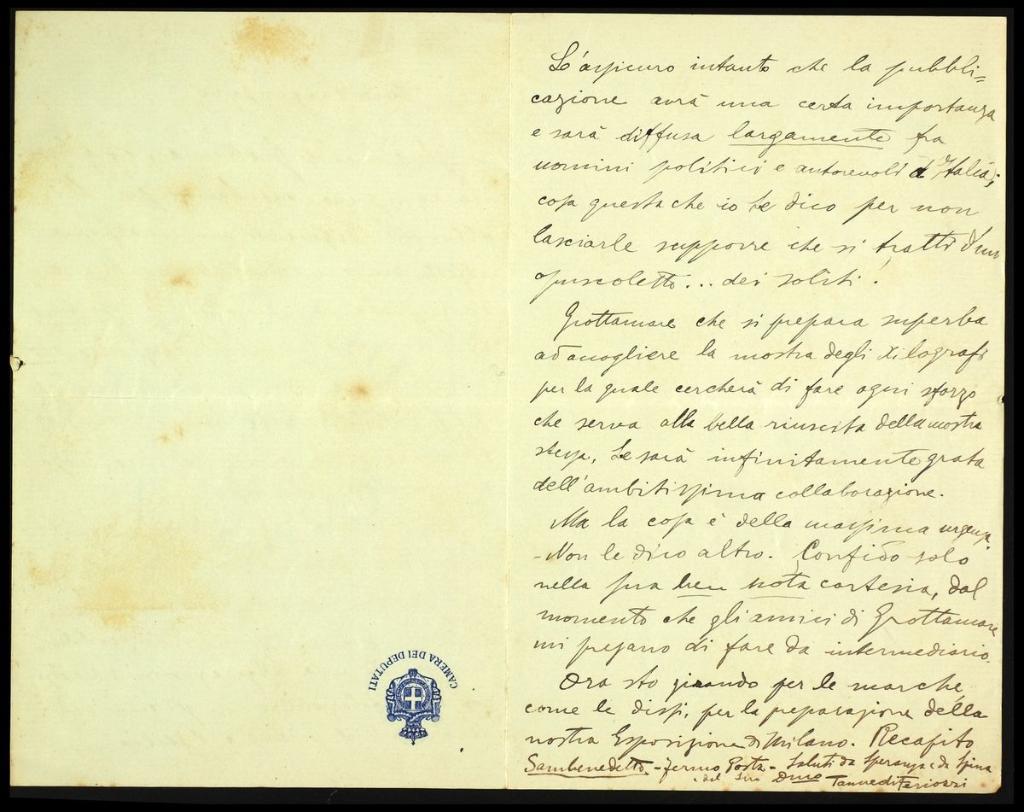 CAMERA DEI DEPUTATI
L'assicuro intanto che la pubbli=
cazione avrà una certa importanza
e sarà diffusa largamente fra
uomini politici e autorevoli d'Italia;
cosa questa che io Le dico per non
lasciarle supporre che si tratti d'un
opuscoletto... dei soliti.
Grottamare che si prepara superba
ad accogliere la mostra degli xilografi
per la quale cercherà di fare ogni sforzo
che serva alla bella riuscita della mostra
stessa, Le sarà infinitamente grata
dell'ambitissima collaborazione.
Ma la cosa è della massima urgenza.
- Non le dico altro. Confido solo
nella sua ben nota cortesia, dal
momento che gli amici di Grottamare
mi pregano di fare da intermediario.
Ora sto girando per le marche,
come le dissi, per la preparazione della
nostra Esposizione di Milano. Recapito
Sambenedetto - fermo Posta - Saluti da Speranza e da Spina
del Suo